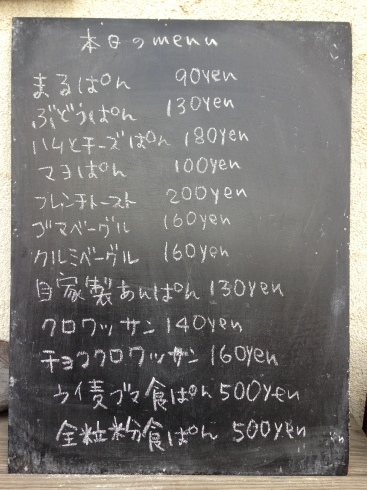 本日のmenu
まるぱん 90yen
ぶどうぱん 130yen
ハムとチーズぱん 180yen
マヨぱん 100yen
フレンチトースト 200yen
ゴマベーグル 160yen
クルミベーグル 160yen
自家製あんぱん 130yen
クロワッサン 140yen
チョコクロワッサン 160yen
ライ麦ゴマ食ぱん 500yen
全粒粉食ぱん 500yen